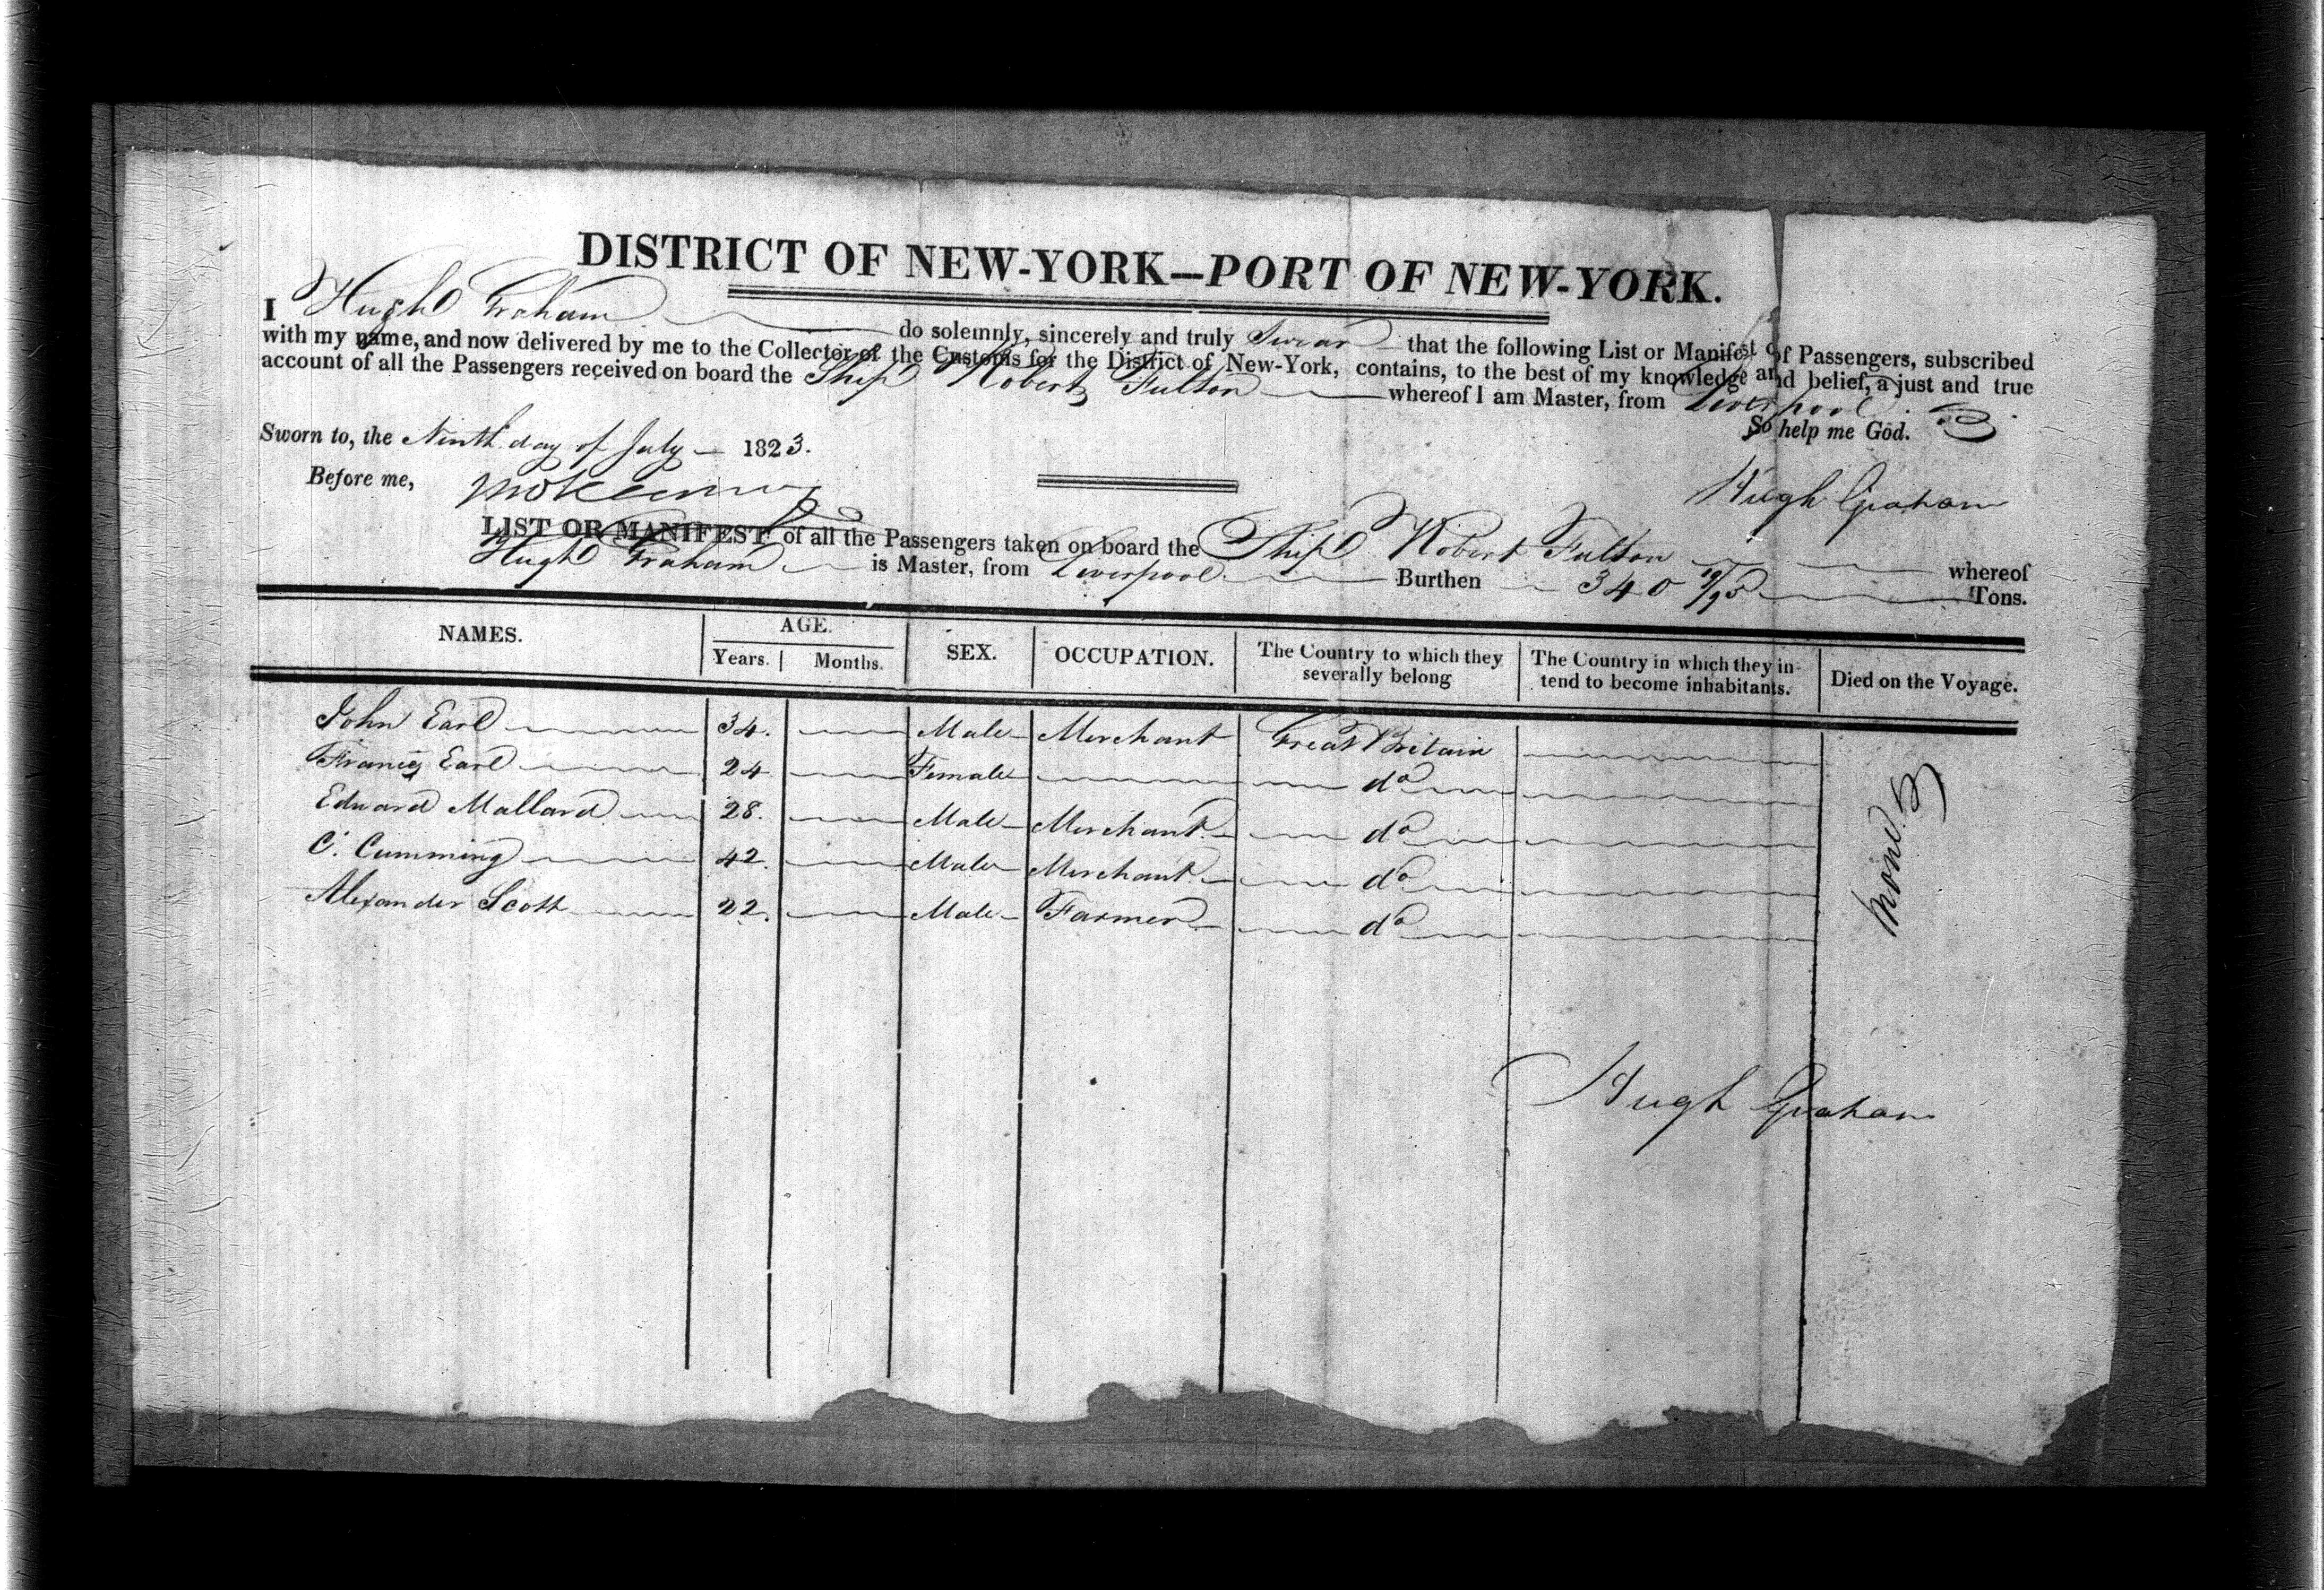 DISTRICT OF NEW-YORK—PORT OF NEW-YORK.
I Hugh Graham do solemnly, sincerely and truly Swear that the following List or Manifest of Passengers, subscribed
with my name, and now delivered by me to the Collector of the Customs for the District of New-York, contains, to the best of my knowledge and belief, a just and true
account of all the Passengers received on board the Ship Robert Fulton whereof I am Master, from Liverpool.
So help me God.
Sworn to, the Ninth day of July 1823.
Before me,
Hugh Graham
LIST OR MANIFEST of all the Passengers taken on board the Ship Robert Fulton whereof
Hugh Graham is Master, from Liverpool Burthen 340 19/95 Tons.
NAMES. AGE. Years. Months. SEX. OCCUPATION. The Country to which they severally belong The Country in which they intend to become inhabitants. Died on the Voyage.
John Earl 34. Male Merchant Great Britain
Francis Earl 24 Female do
Edward Mallard 28. Male Merchant do
C. Cumming 42. Male Merchant do
Alexander Scott 22. Male Farmer do
None
Hugh Graham